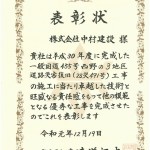 表彰状
株式会社中村建設 様
貴社は平成30年度に完成した
一般国道455号西野の3地区
道路災害
工事
の施工に当たり卓越した技術と
旺盛なる責任感をもって他の模範
となる優秀な工事を完成させた
のでこれを表彰します
令和元年12月19日